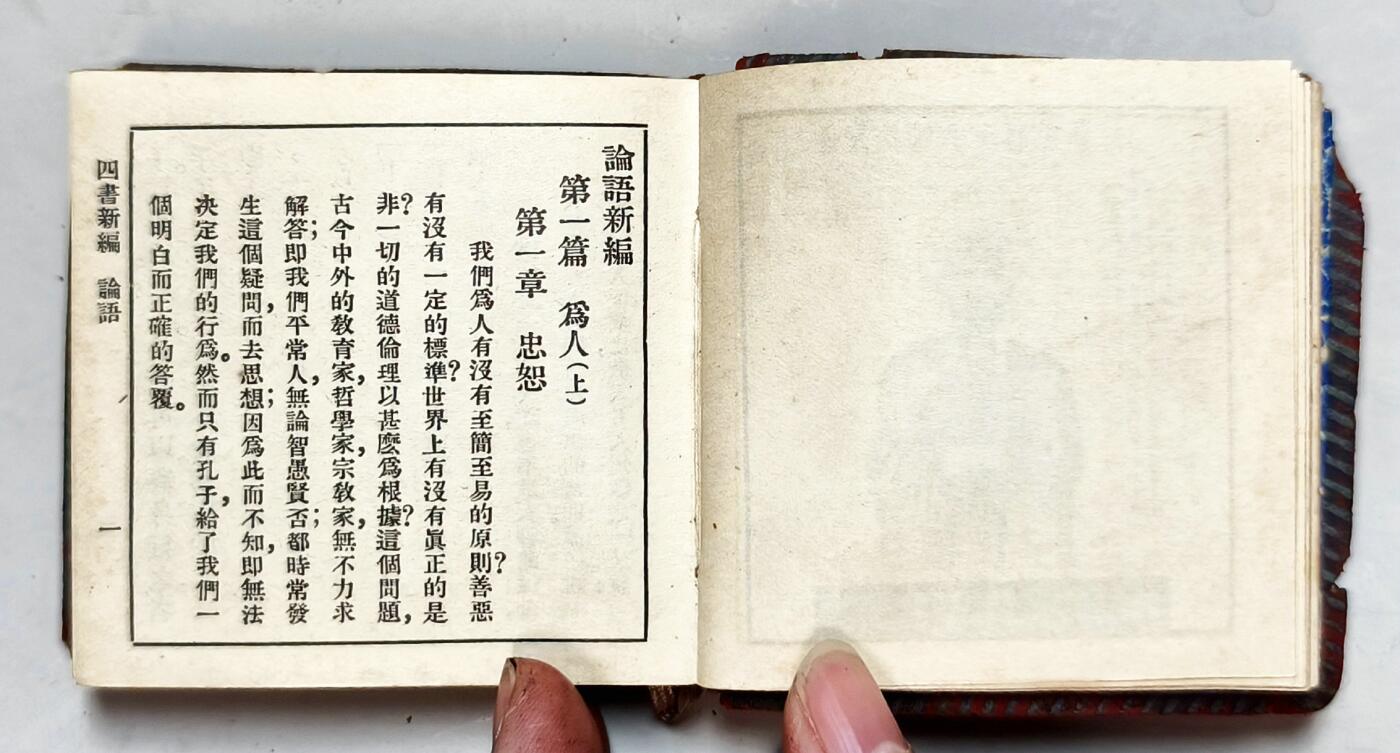 論語新編
第一篇　爲人（上）
第一章　忠恕
我們爲人有沒有至簡至易的原則？善惡
有沒有一定的標準？世界上有沒有眞正的是
非？一切的道德倫理以甚麽爲根據？這個問題，
古今中外的敎育家，哲學家，宗敎家，無不力求
解答；即我們平常人，無論智愚賢否；都時常發
生這個疑問，而去思想；因爲此而不知，即無法
決定我們的行爲。然而只有孔子，給了我們一
個明白而正確的答覆。
四書新編　論語
一